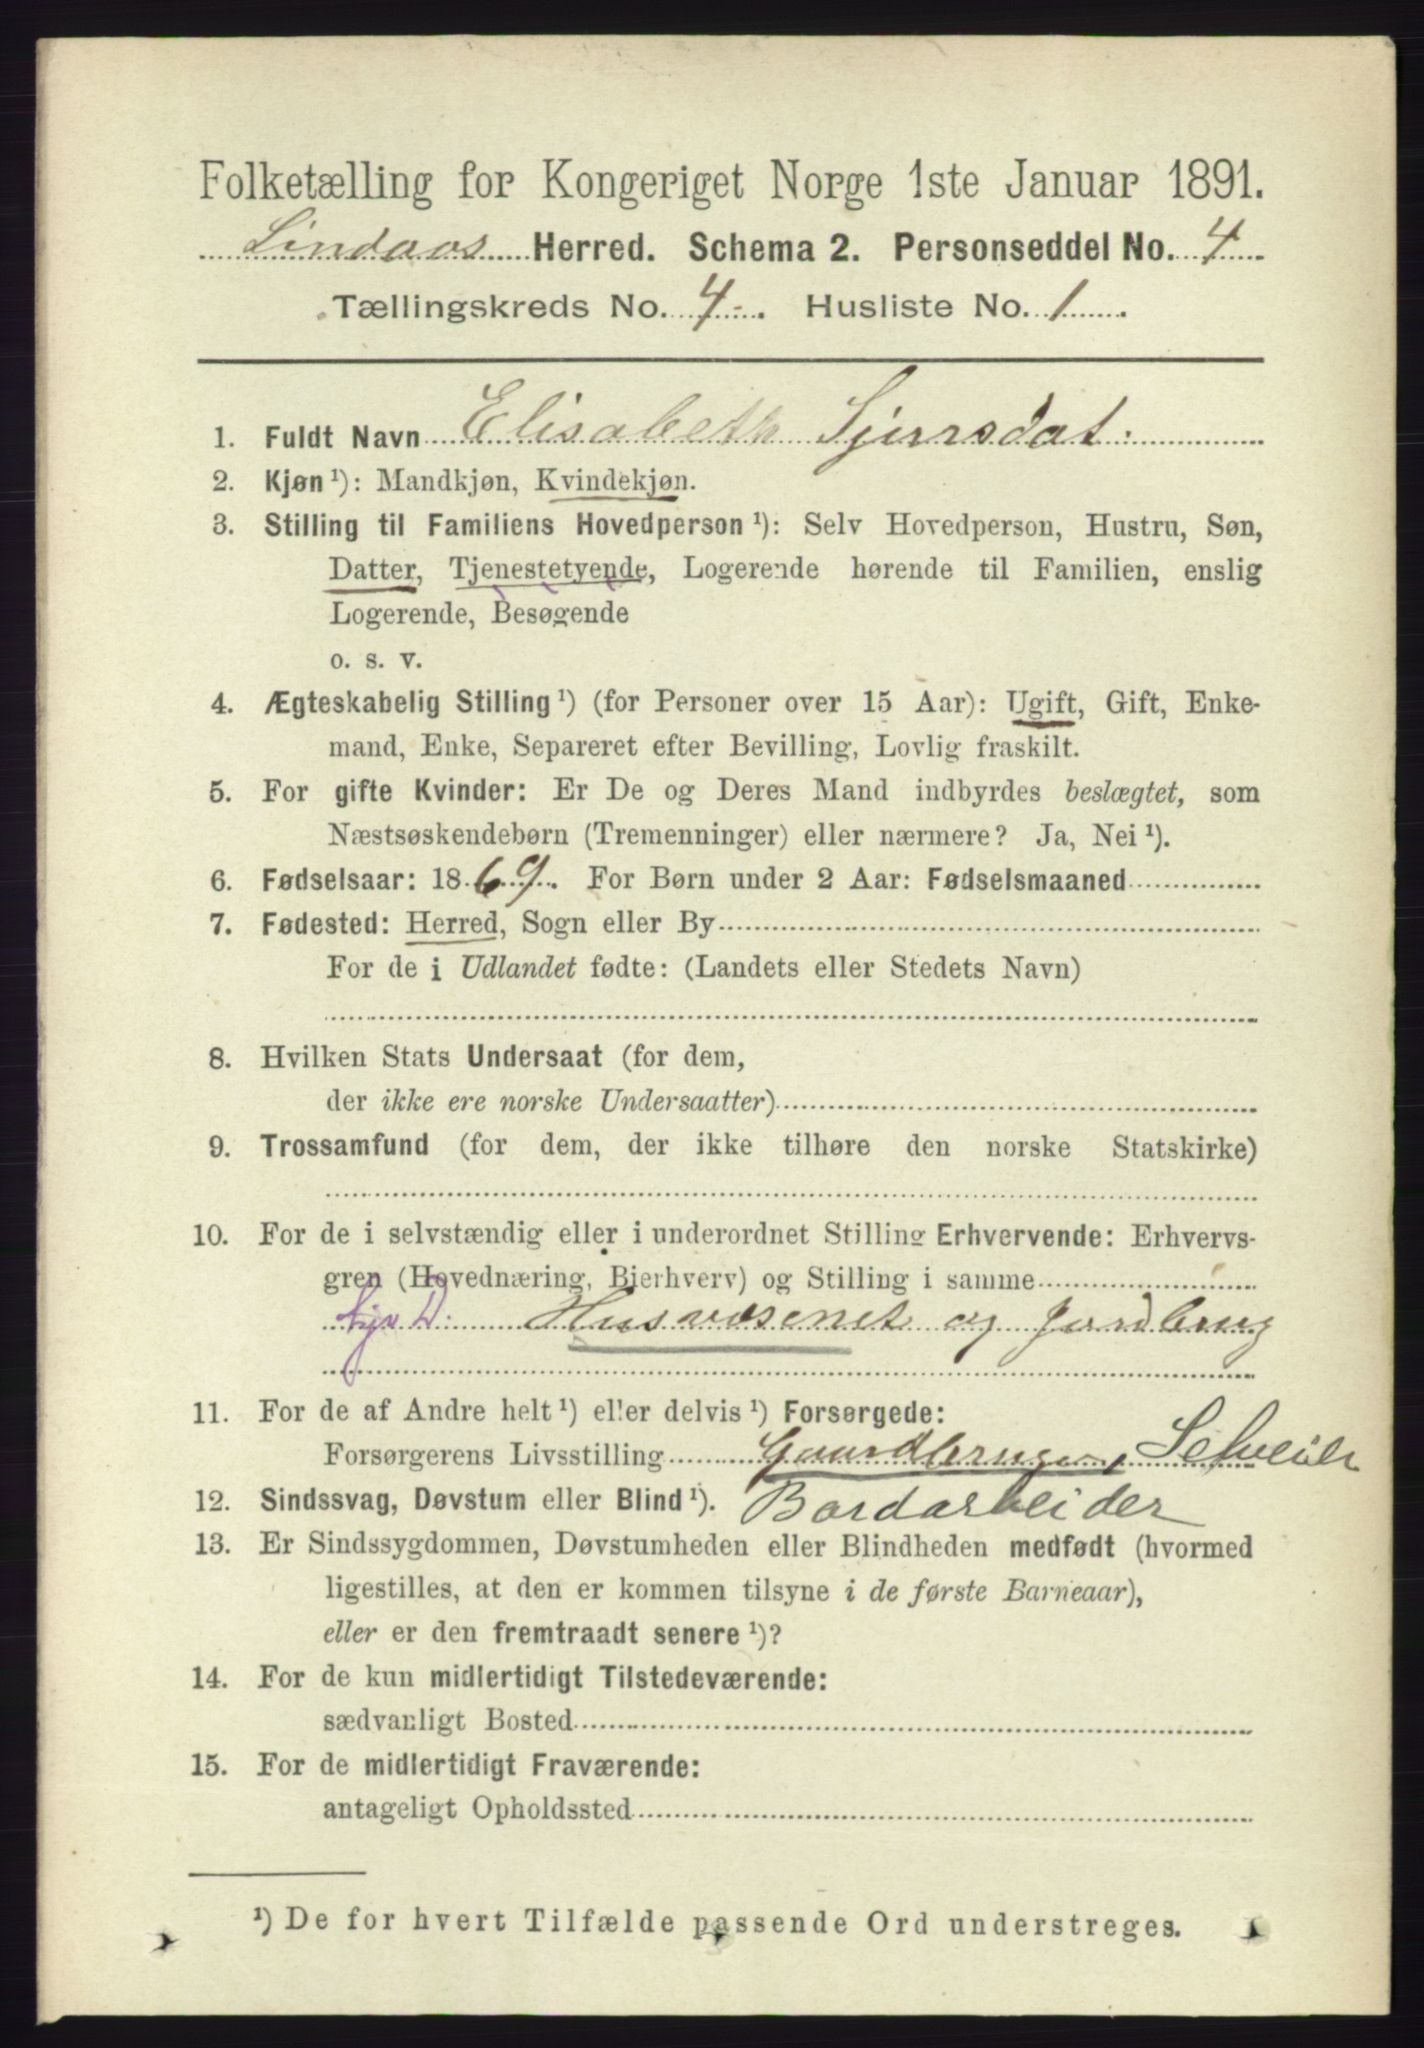 Folketælling for Kongeriget Norge 1ste Januar 1891.
Lindaas Herred. Schema 2. Personseddel No. 4
Tællingskreds No. 4. Husliste No. 1
1. Fuldt Navn Elisabeth Sjursdat.
2. Kjøn ¹): Mandkjøn, Kvindekjøn.
3. Stilling til Familiens Hovedperson ¹): Selv Hovedperson, Hustru, Søn,
Datter, Tjenestetyende, Logerende hørende til Familien, enslig
Logerende, Besøgende
o. s. v.
4. Ægteskabelig Stilling ¹) (for Personer over 15 Aar): Ugift, Gift, Enke-
mand, Enke, Separeret efter Bevilling, Lovlig fraskilt.
5. For gifte Kvinder: Er De og Deres Mand indbyrdes beslægtet, som
Næstsøskendebørn (Tremenninger) eller nærmere? Ja, Nei ¹).
6. Fødselsaar: 1869. For Børn under 2 Aar: Fødselsmaaned
7. Fødested: Herred, Sogn eller By
For de i Udlandet fødte: (Landets eller Stedets Navn)
8. Hvilken Stats Undersaat (for dem,
der ikke ere norske Undersaatter)
9. Trossamfund (for dem, der ikke tilhøre den norske Statskirke)
10. For de i selvstændig eller i underordnet Stilling Erhvervende: Erhvervs-
gren (Hovednæring, Bierhverv) og Stilling i samme
Husvæsenet og Jordbrug
11. For de af Andre helt ¹) eller delvis ¹) Forsørgede:
Forsørgerens Livsstilling Gaardbruger, Selveier
12. Sindssvag, Døvstum eller Blind ¹). Bordarbeider
13. Er Sindssygdommen, Døvstumheden eller Blindheden medfødt (hvormed
ligestilles, at den er kommen tilsyne i de første Barneaar),
eller er den fremtraadt senere ¹)?
14. For de kun midlertidigt Tilstedeværende:
sædvanligt Bosted
15. For de midlertidigt Fraværende:
antageligt Opholdssted
¹) De for hvert Tilfælde passende Ord understreges.